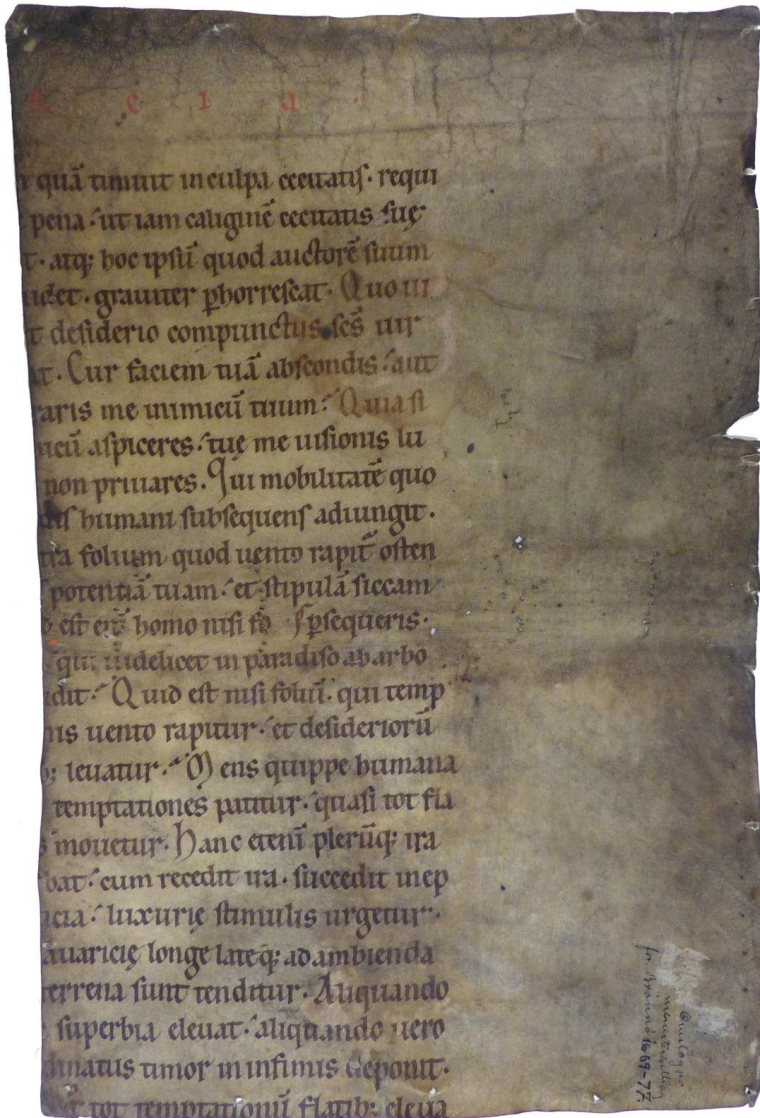 c i d .
quā timuit in culpa cecitatis. requi
pena. ut iam caliginē cecitatis suę
t. atq; hoc ipsū quod auctorē suum
idet. grauiter ꝑhorrescat. Quo ui
t desiderio compunctus scs̄ uir
it. Cur faciem tuā abscondis. aut
raris me inimicū tuum. Quia si
icū aspiceres. tuę me uisionis lu
non priuares. Qui mobilitatē quo
humani subsequens adiungit.
tra folium quod uento rapit᷑ osten
potentiā tuam. et stipulā siccam
ꝑsequeris.
est eni᷑ homo nisi fo
qui uidelicet in paradiso ab arbo
idit. Quid est nisi foliū. qui temp
nis uento rapitur. et desideriorū
b; leuatur. Mens quippe humana
temptationes patitur. quasi tot fla
s mouetur. Hanc etenī plerūq; ira
bat. cum recedit ira. succedit inep
icia. luxurię stimulis urgetur.
auaricię longe lateq; ad ambienda
terrena sunt tenditur. Aliquando
superbia eleuat. aliquando uero
dinatus timor in infimis deponit.
tot temptationū flatib; eleua
1669-77